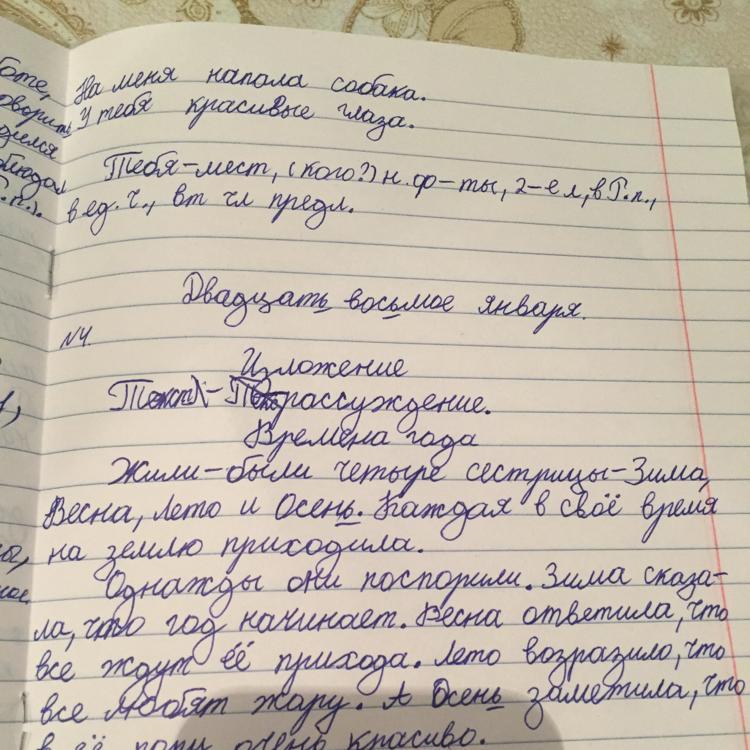 На меня напала собака.
У тебя красивые глаза.
Тебя-мест, (кого?) н. ф-ты, 2-е л, в Р.п.,
в ед. ч., вт чл предл.
Двадцать восьмое января.
№4.
Изложение
Текст - рассуждение.
Времена года
Жили-были четыре сестрицы-Зима,
Весна, Лето и Осень. Каждая в своё время
на землю приходила.
Однажды они поспорили. Зима сказа-
ла, что год начинает. Весна ответила, что
все ждут её прихода. Лето возразило, что
все любят жару. А Осень заметила, что
в её пору очень красиво.